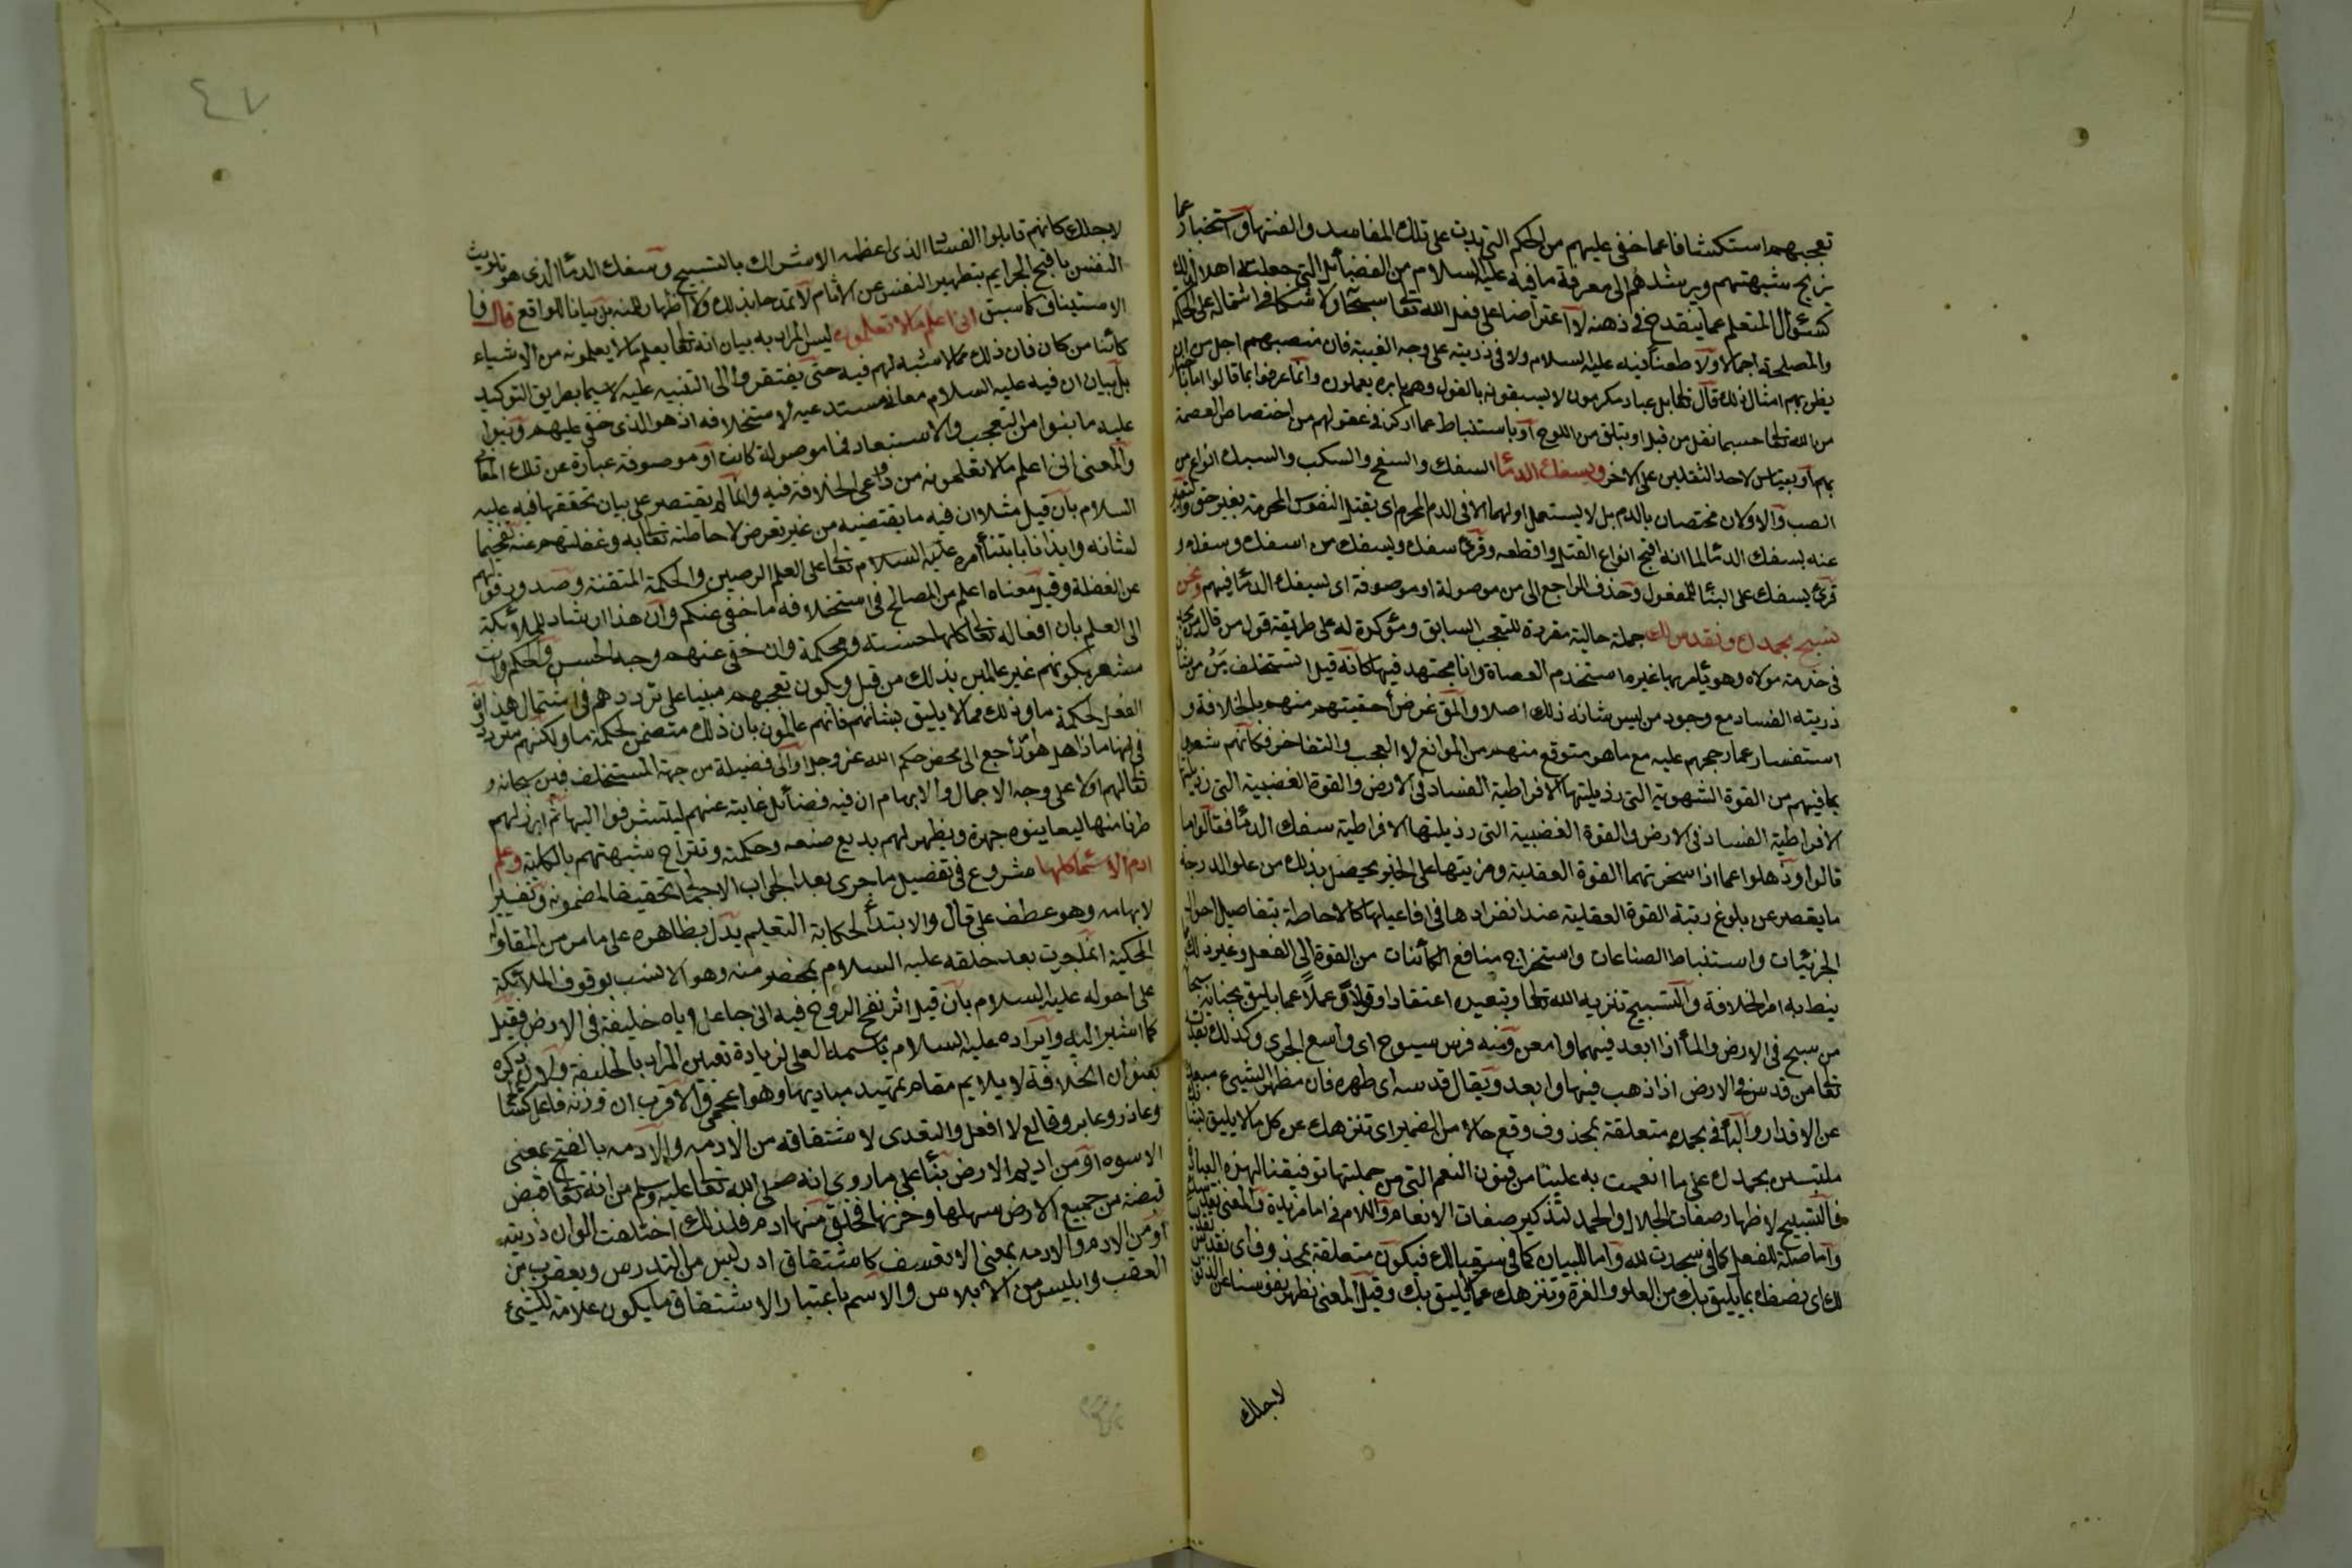 تعجبهم استكشافا عما خفى عليهم من الحكم التى بدت على تلك المفاسد والغتها واستخبارا عما
يزيح شبهتهم ويرشدهم الى معرفة ما فيه عليه السلام من الفضائل التى جعلته اهلا لذلك
كسؤال المتعلم عما ينقدح فى ذهنه لا اعتراضا على فعل الله تعا سبحانه ولا شكا فى اشتماله على الحكمة
والمصلحة اجمالا ولا طعنا فيه عليه السلام ولا فى ذريته على وجه الغيبة فان منصبهم اجل من ان
يظن بهم امثال ذلك قال تعالى بل عباد مكرمون لا يسبقونه بالقول وهم بامره يعملون وانما عرفوا ما قالوا اما باخبار
من الله تعالى حسبما نقل من قبل او بتلق من اللوح او باستنباط عما ارتكز فى عقولهم من اختصاص العصمة
بهم او بقياس لاحد الثقلين على الاخر ويسفك الدماء السفك والسفح والسكب والسبك انواع من
الصب والاولان مختصان بالدم بل لا يستعمل اولهما الا فى الدم المحرم اى يقتل النفوس المحرمة بغير حق والتعبير
عنه بسفك الدماء لما انه اقبح انواع القتل وافظعه وقرئ يسفك ويسفك من اسفك وسفك و
قرئ يسفك على البناء للمفعول وحذف الراجع الى من موصولة او موصوفة اى يسفك الدماء فيهم ونحن
نسبح بحمدك ونقدس لك جملة حالية مقررة للتعجب السابق ومؤكدة له على طريقة قول من قال من يجد
فى خدمة مولاه وهو يأمر بها غيره ا تستخدم العصاة وانا مجتهد فيها كانه قيل ا تستخلف من من شان
ذريته الفساد مع وجود من ليس شانه ذلك اصلا والمق عرض احقيتهم منهم بالخلافة و
استفسار عما رجحهم عليه مع ما هو متوقع منهم من الموانع لا العجب والتفاخر فكانهم شعروا
بما فيهم من القوة الشهوية التى رذيلتها الافراطية الفساد فى الارض والقوة الغضبية التى رذيلتها
الافراطية الفساد فى الارض والقوة الغضبية التى رذيلتها الافراطية سفك الدماء فقالوا ما
قالوا وذهلوا عما اذا سخرتهما القوة العقلية ومرنتهما على الخير يحصل بذلك من علو الدرجة
ما يقصر عن بلوغ رتبة القوة العقلية عند انفرادها فى افاعيلها كالاحاطة بتفاصيل احوال
الجزئيات واستنباط الصناعات واستخراج منافع الكائنات من القوة الى الفعل وغير ذلك مما
ينط به امر الخلافة والتسبيح تنزيه الله تعالى وتبعيده اعتقادا وقولا وعملا عما يليق بجنابه سبحا
من سبح فى الارض والماء اذا ابعد فيهما وامعن ومنه فرس سبوح اى واسع الجرى وكذلك تقديسه
تعا من قدس فى الارض اذا ذهب فيها وابعد ويقال قدسه اى طهره فان مطهر الشيء مبعده
عن الاقذار والباء فى بحمدك متعلقة بمحذوف وقع حالا من الضمير اى تنزهك عن كل ما لا يليق بشانك
ملتبسين بحمدك على ما انعمت به علينا من فنون النعم التى من جملتها توفيقنا لهذه العبادة
فالتسبيح لاظهار صفات الجلال والحمد لتذكير صفات الانعام واللام فى اما مزيدة والمعنى نقدسك
واما صلة للفعل كما فى سجدت لله واما للبيان كما فى سقيا لك فيكون متعلقة بمحذوف اى نقدس
لك اى نصفك بما يليق بك من العلو والعزة وتنزهك عما لا يليق بك وقيل المعنى نطهر نفوسنا عن الذنوب
لاجلك
٤٧
لاجلك كانهم قابلوا الفساد الذى اعظمه الاشراك بالتسبيح وسفك الدماء الذى هو تلويث
النفس باقبح الجرايم بتطهير النفس عن الاثام لا تمدحا بذلك ولا اظهارا للمنه بل بيانا للواقع قال فا
الاستيناف كما سبق انى اعلم ما لا تعلمون ليس المراد به بيان انه تعالى يعلم ما لا يعلمونه من الاشياء
كائنا من كان فان ذلك مما لا شبهة لهم فيه حتى يفتقروا الى التنبيه عليه لا سيما بطريق التوكيد
بل بيان ان فيه عليه السلام معانى مستدعيه لاستخلافه اذ هو الذى خفى عليهم وبنوا
عليه ما بنوا من التعجب والاستبعاد فما موصولة كانت او موصوفة عبارة عن تلك المعانى
والمعنى انى اعلم ما لا تعلمونه من دواعى الخلافة فيه وانما لم يقتصر على بيان تحققها فيه عليه
السلام بان قيل مثلا ان فيه ما يقتضيه من غير تعرض لاحاطته تعالى به وغفلتهم عنه تفخيما
لشانه وايذانا بابتناء امره عليه السلام تعالى على العلم الرصين والحكمة المتقنة وصدور قولهم
عن الغفلة وقيل معناه اعلم من المصالح فى استخلافه ما خفى عنكم وان هذا ارشاد للملائكة
الى العلم بان افعاله تعالى كلها حسنة ومحكمة وان خفى عنهم وجه الحسن والحكم وانت
مشعر بكونهم غير عالمين بذلك من قبل ويكون تعجبهم مبنيا على ترددهم فى اشتمال هذا
الفعل لحكمة ما وذلك مما لا يليق بشانهم فانهم عالمون بان ذلك متضمن لحكمة ما ولكنهم مترددون
فى انها ماذا هل هو راجع الى محض حكم الله عز وجل او الى فضيلة من جهة المستخلف فبين سبحانه و
تعالى لهم اولا على وجه الاجمال والابهام ان فيه فضائل غايبة عنهم ليستشرفوا اليها ثم ابرز لهم
طرفا منها ليعاينوه جهرة ويظهر لهم بديع صنعه وحكمته وتنزاح شبهتهم بالكلية وعلم
ادم الاسماء كلها شروع فى تفصيل ما جرى بعد الجواب الاجمالى تحقيقا لمضمونه وتفسيرا
لابهامه وهو عطف على قال والابتداء لحكاية التعليم يدل بظاهره على ما مر من المقاولة
الحكية انما جرت بعد خلقه عليه السلام بمحضر منه وهو الانسب بوقوف الملائكة
على احواله عليه السلام بان قيل اثر نفخ الروح فيه انى جاعل اياه خليفة فى الارض فقيل
كما اشير اليه وايراده عليه السلام باسمه العلمى لزيادة تعيين المراد بالخليفة ولان ذكره
بعنوان الخلافة لا يلايم مقام تمهيد مباديها وهو اعجمى والاقرب ان وزنه فاعل كشالخ
وعاذر وعابر وفالع لا افعل والتصدى لاشتقاقه من الادمه والادمه بالفتح بمعنى
الاسوه او من اديم الارض بناء على ما روى انه صلى الله تعا عليه وسلم من انه تعا قبض
قبضة من جميع الارض سهلها وحزنها فخلق منها ادم فلذلك اختلفت الوان ذريته
او من الادم والادمه بمعنى الالفة تعسف كاشتقاق ادريس من الدرس ويعقوب من
العقب وابليس من الابلاس والاسم باعتبار الاشتقاق ما يكون علامة للشيء